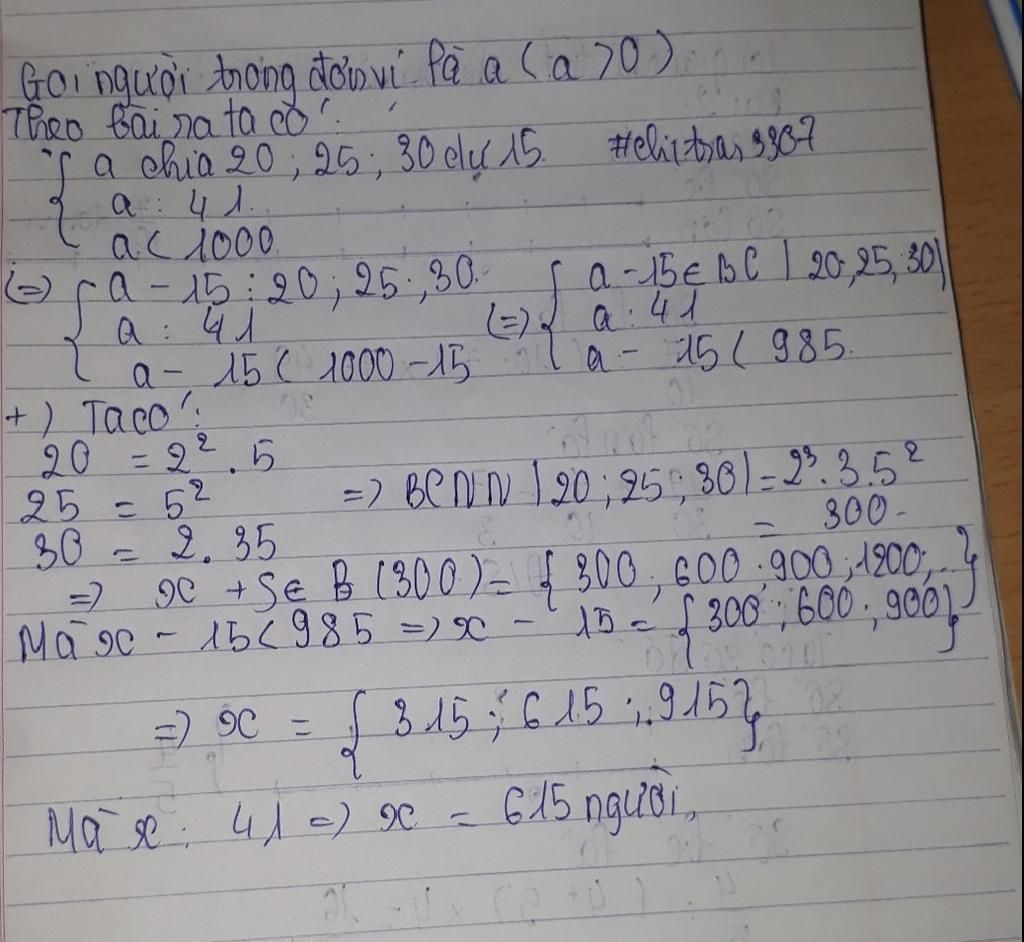 Gọi người trong đơn vị là a ( a > 0 )
Theo bài ra ta có :
{ a chia 20 ; 25 ; 30 dư 15.
a : 41.
a < 1000
(=) { a - 15 : 20 ; 25 ; 30.
a : 41
a - 15 < 1000 - 15
(=) { a - 15 ∈ BC | 20 ; 25 ; 30 |
a : 41
a - 15 < 985.
+ ) Ta có :
20 = 2² . 5
25 = 5²
30 = 2 . 35
=> BCNN | 20 ; 25 ; 30 | = 2² . 3 . 5²
= 300 -
=> x + S ∈ B ( 300 ) = { 300 ; 600 ; 900 ; 1200 ; .. }
Mà x - 15 < 985 => x - 15 = { 300 ; 600 ; 900 }
=> x = { 315 ; 615 ; 915 }
Mà x : 41 => x = 615 người.